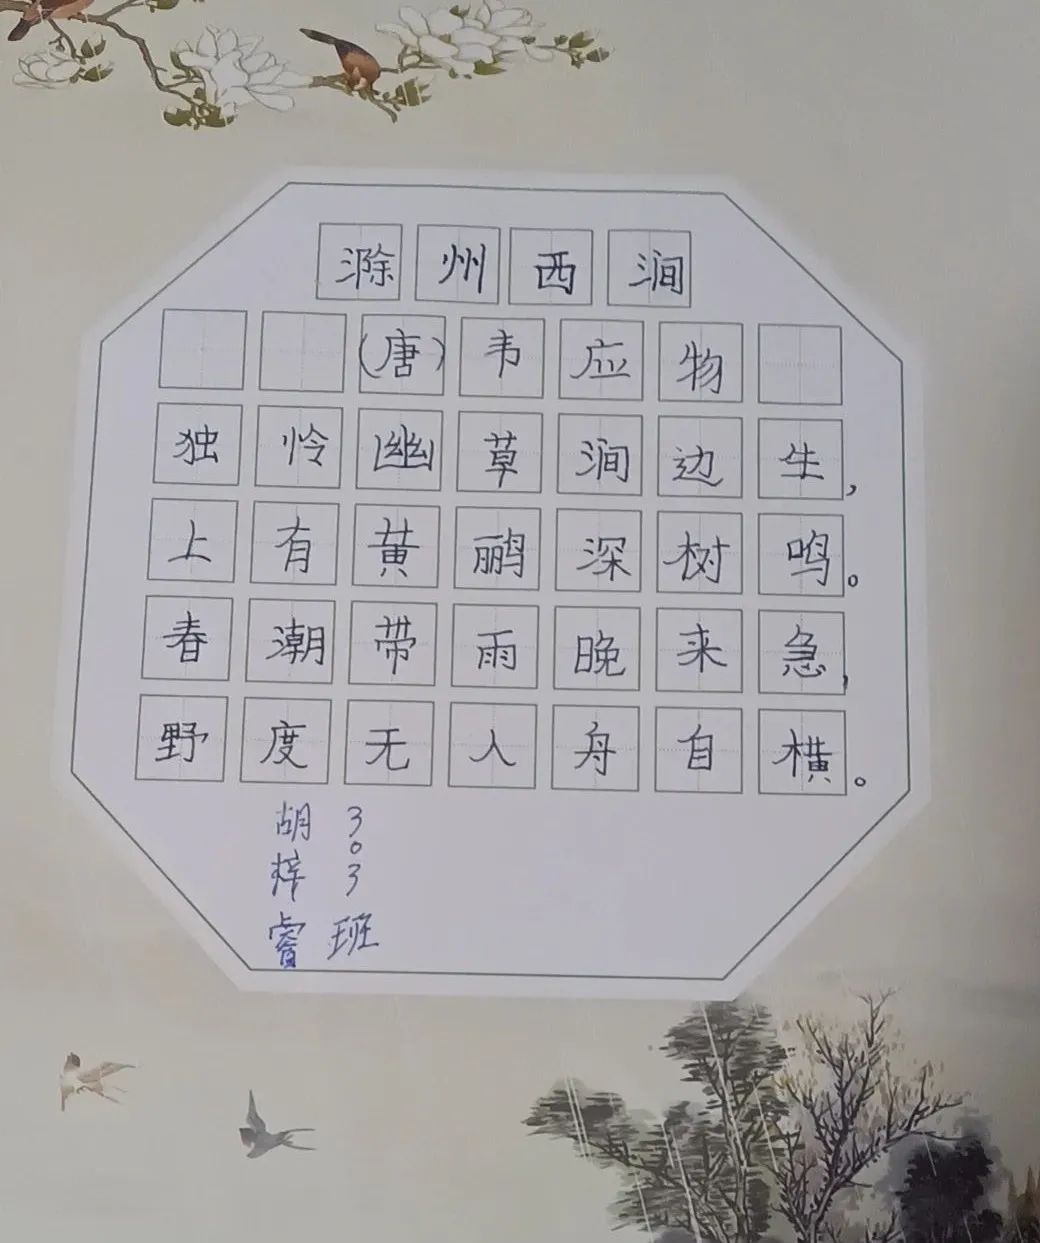 滁州西涧
(唐)韦应物
独怜幽草涧边生,
上有黄鹂深树鸣。
春潮带雨晚来急,
野度无人舟自横。
胡梓睿
303班